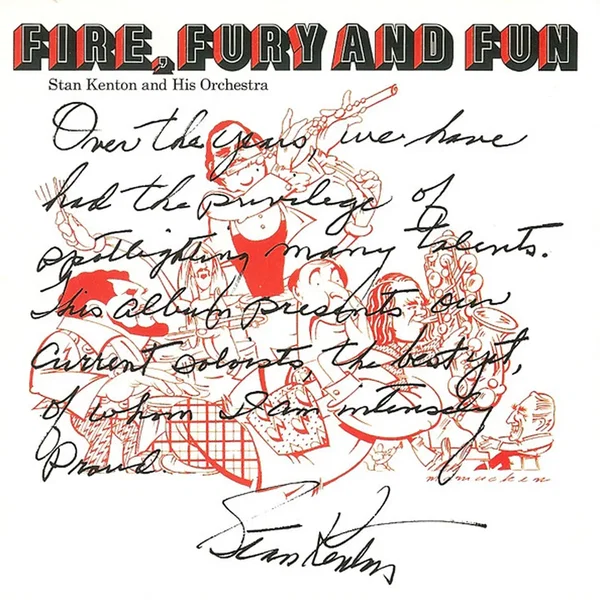 FIRE, FURY AND FUN
Stan Kenton and His Orchestra
Over the years, we have
had the privilege of
spotlighting many talents.
This album presents our
current soloists, the best yet,
of whom I am intensely
Proud.
Stan Kenton